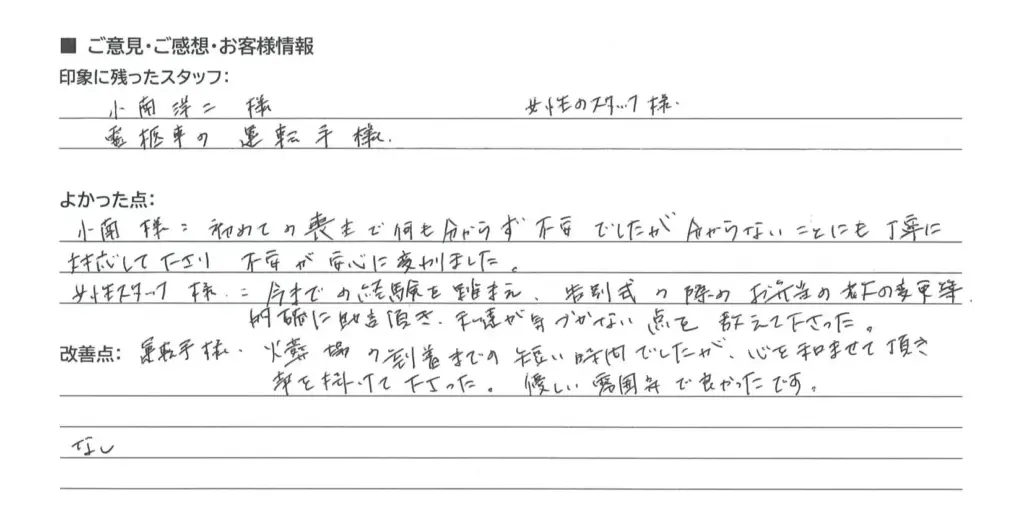 ■ ご意見・ご感想・お客様情報
印象に残ったスタッフ：
小南洋二 様 女性のスタッフ様.
霊柩車の運転手様.
よかった点：
小南様：初めての喪主で何も分からず不安でしたが分からないことにも丁寧に
対応して下さり 不安が安心に変わりました。
女性スタッフ様：今までの経験を踏まえ、告別式の際のお弁当の数の変更等
的確に助言頂き、私達が気づかない点を教えて下さった。
改善点：運転手様. 火葬場の到着までの短い時間でしたが、心を和ませて頂き
声を掛けて下さった。優しい雰囲気で良かったです。
なし